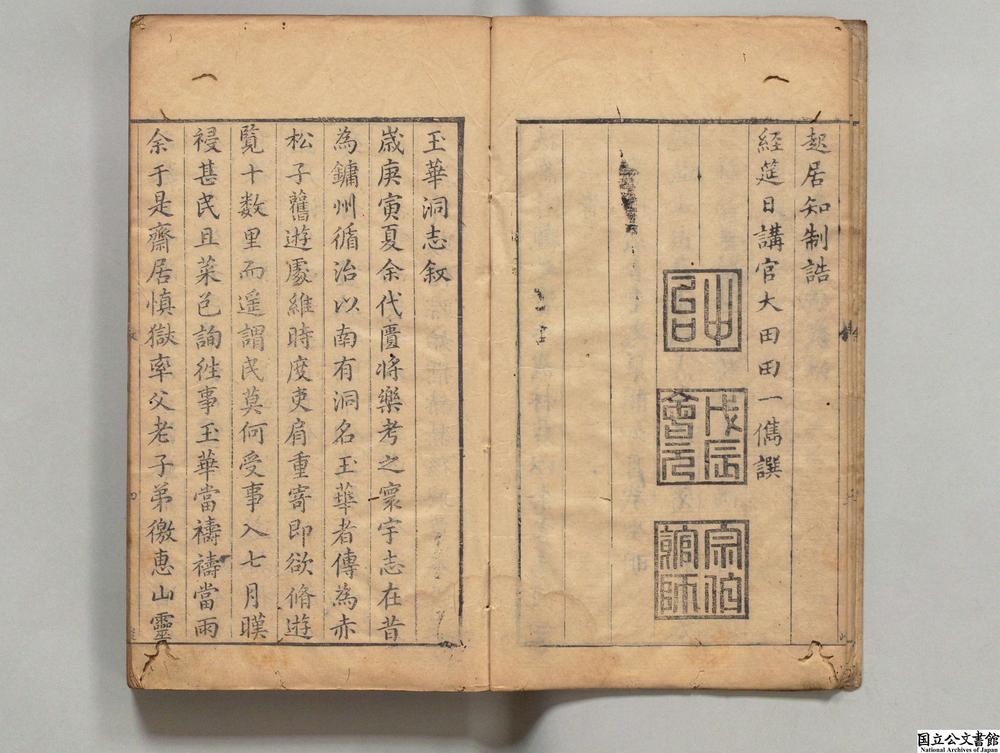 起居知制誥
經筵日講官大田田一儁譔
戊辰會元
宗伯館師
玉華洞志叙
歲庚寅夏余代匱將樂考之寰宇志在昔
為鏞州循治以南有洞名玉華者傳為赤
松子舊遊處維時度吏肩重寄即欲脩遊
覧十数里而遥謂民莫何受事入七月暵
祲甚民且菜色詢徃事玉華當禱禱當雨
余于是齋居慎獄率父老子弟徼惠山靈
国立公文書館
National Archives of Japan